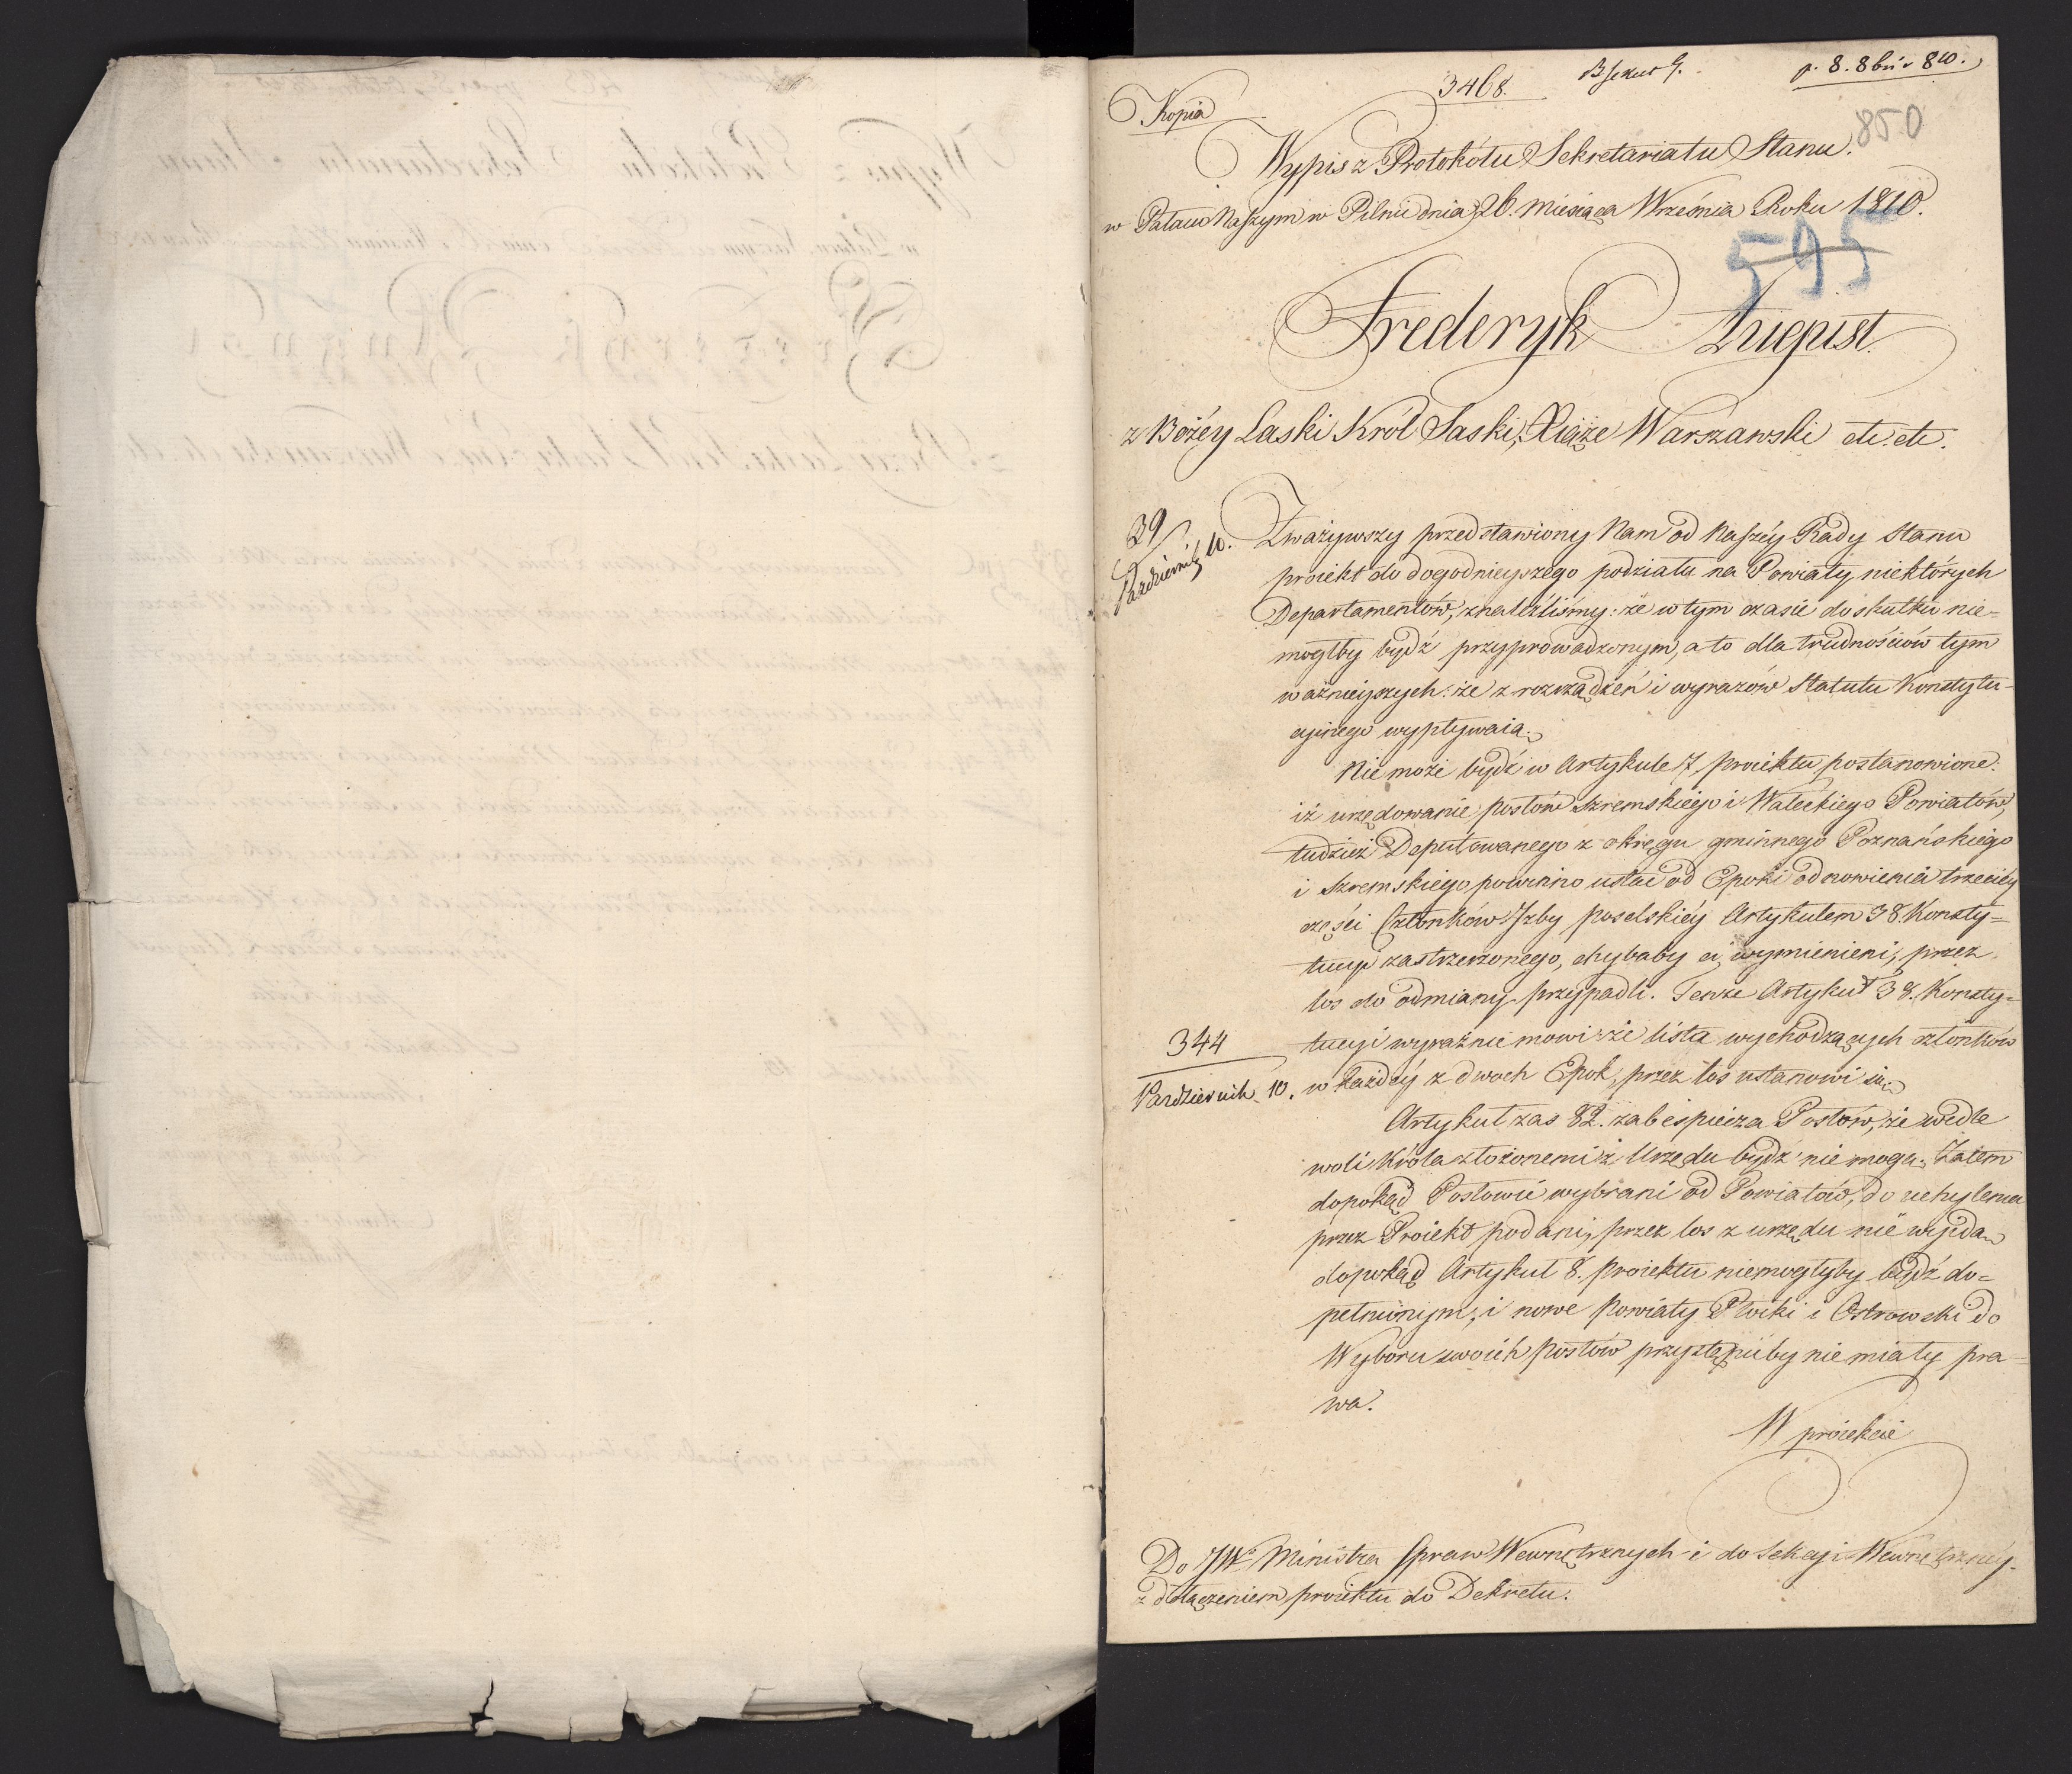 3468.
p. 8. 8bris 810.
Kopia
850
Wypis z Protokółu Sekretariatu Stanu.
w Pałacu Naszym w Pilnic dnia 26. Miesiąca Września Roku 1810.
595
Frederyk August
z Bożéy Łaski Król Saski, Xiąże Warszawski etc. etc.
39
Październik 10.
Zważywszy przedstawiony Nam od Naszéy Rady Stanu
proiekt do dogodnieyszego podziału na Powiaty niektórych
Departamentów, znaleźliśmy: że w tym czasie do skutku nie=
mógłby bydź przyprowadzonym, a to dla trudnościów tym
ważnieyszych: że z rozrządzeń i wyrazów Statutu Konstytu=
cyinego wypływaią.
Nie może bydź w Artykule 7. proiektu postanowione:
iż urzędowanie posłów Szremskiego i Wałeckiego Powiatów,
tudzież Deputowanego z okręgu gminnego Poznańskiego
i Szremskiego powinno ustać od Epoki odnowienia trzeciéy
części Członków Izby poselskiéy Artykułem 38. Konsty=
tucyi zastrzeżonego, chybaby ci wymienieni, przez
los do odmiany przypadli. Tenże Artykuł 38. Konsty=
344
tucyi wyraźnie mowi: że lista wychodzących członków
Pazdziernik 10.
w każdéy z dwoch Epok, przez los ustanowi się.
Artykuł zas 82. zabespiecza Posłów, że wedle
woli Króla złożonemi z Urzędu bydź nie mogą. Zatem
dopokąd Posłowie wybrani od Powiatów, do uchylenia
przez Proiekt podani, przez los z urzędu nie wyidą
dopokąd Artykuł 8. proiektu niemógłby bydź do=
pełnionym, i nowe Powiaty Płocki i Ostrowski do
Wyboru swoich posłów przystąpić by nie miały pra=
wa.
W proiekcie
Do JWo Ministra Spraw Wewnętrznych i do Sekcyi Wewnętrznéy.
z dołączeniem proiektu do Dekretu.